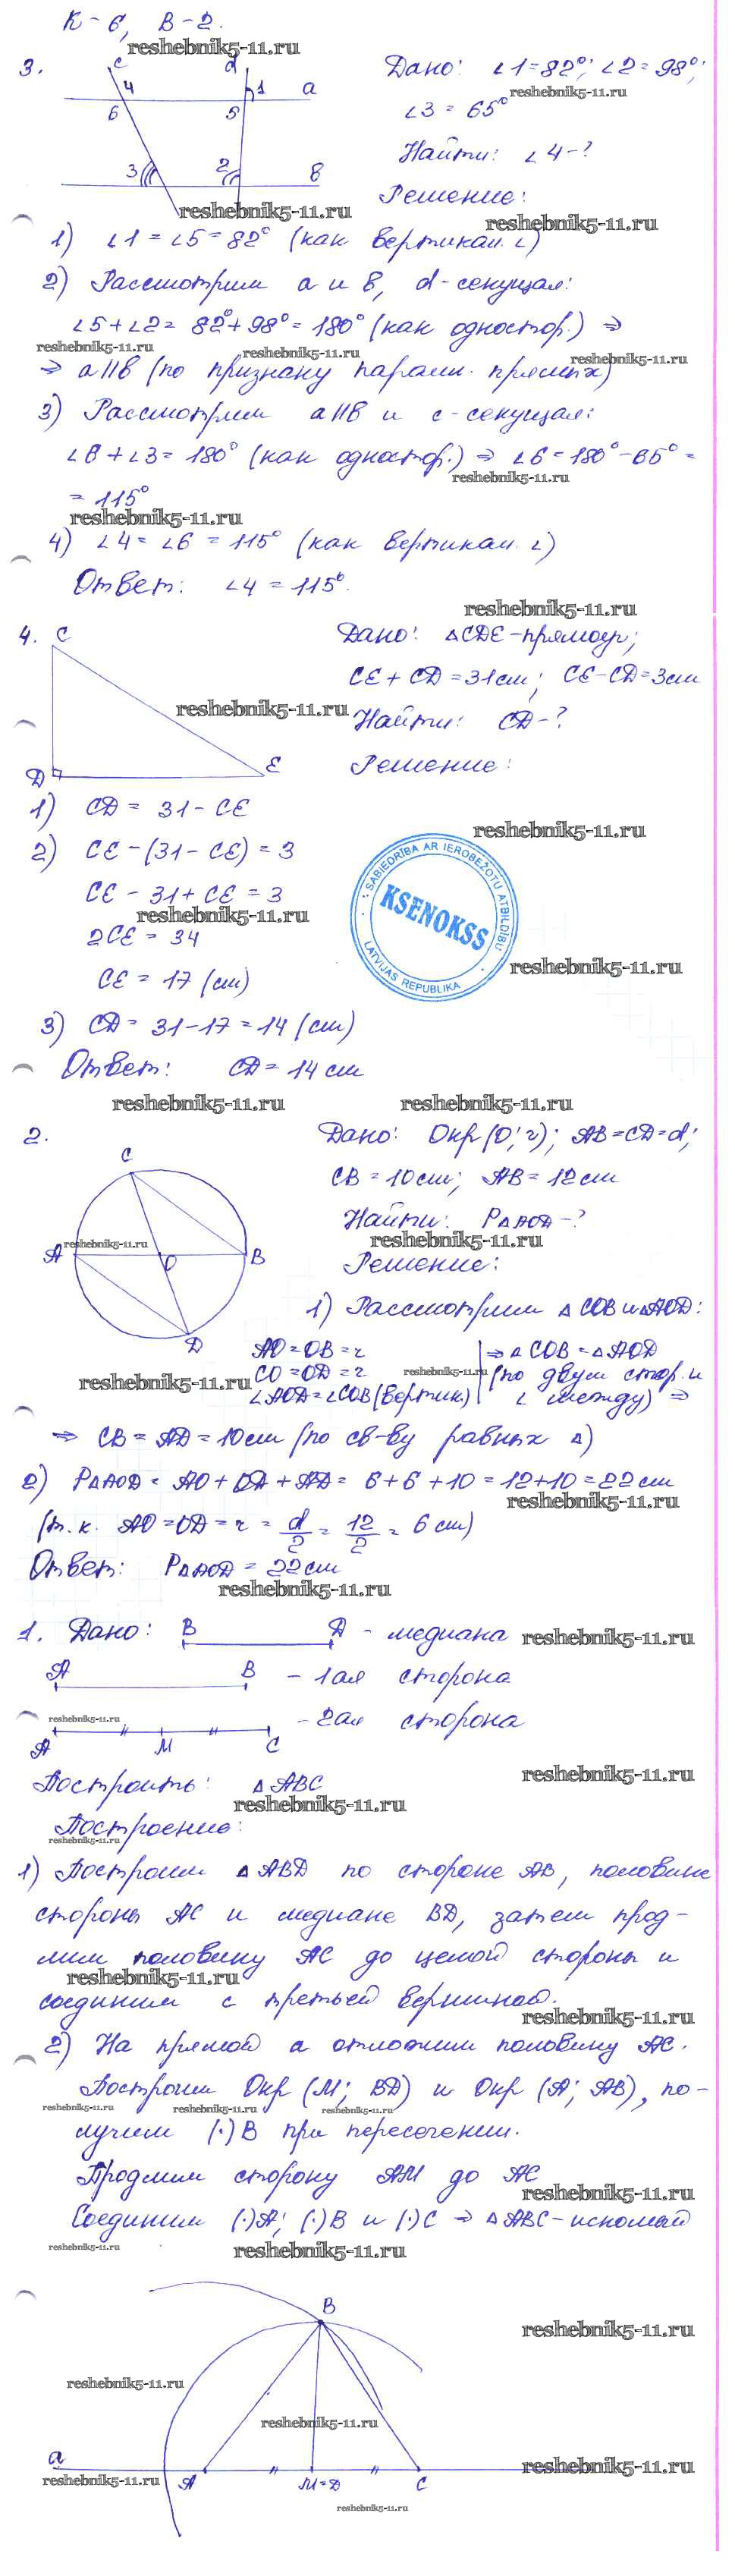 К-6, В-2.
reshebnik5-11.ru
3.
c
d
4
1
a
6
5
3
2
в
Дано: ∠1=82°; ∠2=98°;
reshebnik5-11.ru
∠3=65°
Найти: ∠4-?
Решение:
reshebnik5-11.ru
reshebnik5-11.ru
1) ∠1=∠5=82° (как вертикал. ∠)
2) Рассмотрим a и в, d-секущая:
∠5+∠2=82°+98°=180° (как одностор.) ⇒
reshebnik5-11.ru
reshebnik5-11.ru
reshebnik5-11.ru
⇒ a||в (по признаку паралл. прямых)
3) Рассмотрим a||в и c-секущая:
∠6+∠3=180° (как одностор.) ⇒ ∠6=180°-65°=
reshebnik5-11.ru
=115°
reshebnik5-11.ru
4) ∠4=∠6=115° (как вертикал. ∠)
Ответ: ∠4=115°.
reshebnik5-11.ru
4.
C
D
E
Дано: △CDE-прямоуг;
CE+CD=31см; CE-CD=3см
reshebnik5-11.ru
Найти: CD-?
Решение:
1) CD=31-CE
reshebnik5-11.ru
2) CE-(31-CE)=3
CE-31+CE=3
reshebnik5-11.ru
2CE=34
CE=17 (см)
SABIEDRĪBA AR IEROBEŽOTU ATBILDĪBU
KSENOKSS
LATVIJAS REPUBLIKA
reshebnik5-11.ru
3) CD=31-17=14 (см)
Ответ: CD=14см
reshebnik5-11.ru
reshebnik5-11.ru
2.
C
A
O
B
D
reshebnik5-11.ru
Дано: Окр(O;r); AB=CD=d;
CB=10см; AB=12см
Найти: P△AOD-?
reshebnik5-11.ru
Решение:
1) Рассмотрим △COB и △AOD:
AO=OB=r
CO=OD=r
∠AOD=∠COB(вертик)
⇒△COB=△AOD
(по двум стор. и
∠ между) ⇒
reshebnik5-11.ru
reshebnik5-11.ru
⇒ CB=AD=10см (по св-ву равных △)
2) P△AOD=AO+OD+AD=6+6+10=12+10=22см
reshebnik5-11.ru
(т.к. AO=OD=r=d/2=12/2=6см)
Ответ: P△AOD=22см
reshebnik5-11.ru
1. Дано: B D - медиана
reshebnik5-11.ru
A B - 1ая сторона
reshebnik5-11.ru
A M C - 2ая сторона
reshebnik5-11.ru
Построить: △ABC
reshebnik5-11.ru
Построение:
reshebnik5-11.ru
1) Построим △ABD по стороне AB, половине
стороны AC и медиане BD, затем прод-
лим половину AC до целой стороны и
reshebnik5-11.ru
соединим с третьей вершиной.
reshebnik5-11.ru
2) На прямой a отложим половину AC.
Построим Окр(M; BD) и Окр(A; AB), по-
reshebnik5-11.ru
reshebnik5-11.ru
reshebnik5-11.ru
лучим (·)B при пересечении.
Продлим сторону AM до AC
reshebnik5-11.ru
Соединим (·)A; (·)B и (·)C ⇒ △ABC-искомый
reshebnik5-11.ru
reshebnik5-11.ru
B
reshebnik5-11.ru
reshebnik5-11.ru
reshebnik5-11.ru
a
reshebnik5-11.ru
reshebnik5-11.ru
A
M=D
C
reshebnik5-11.ru